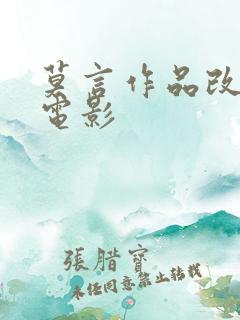 莫言作品改
電影
張腊寶
未经同意禁止转载